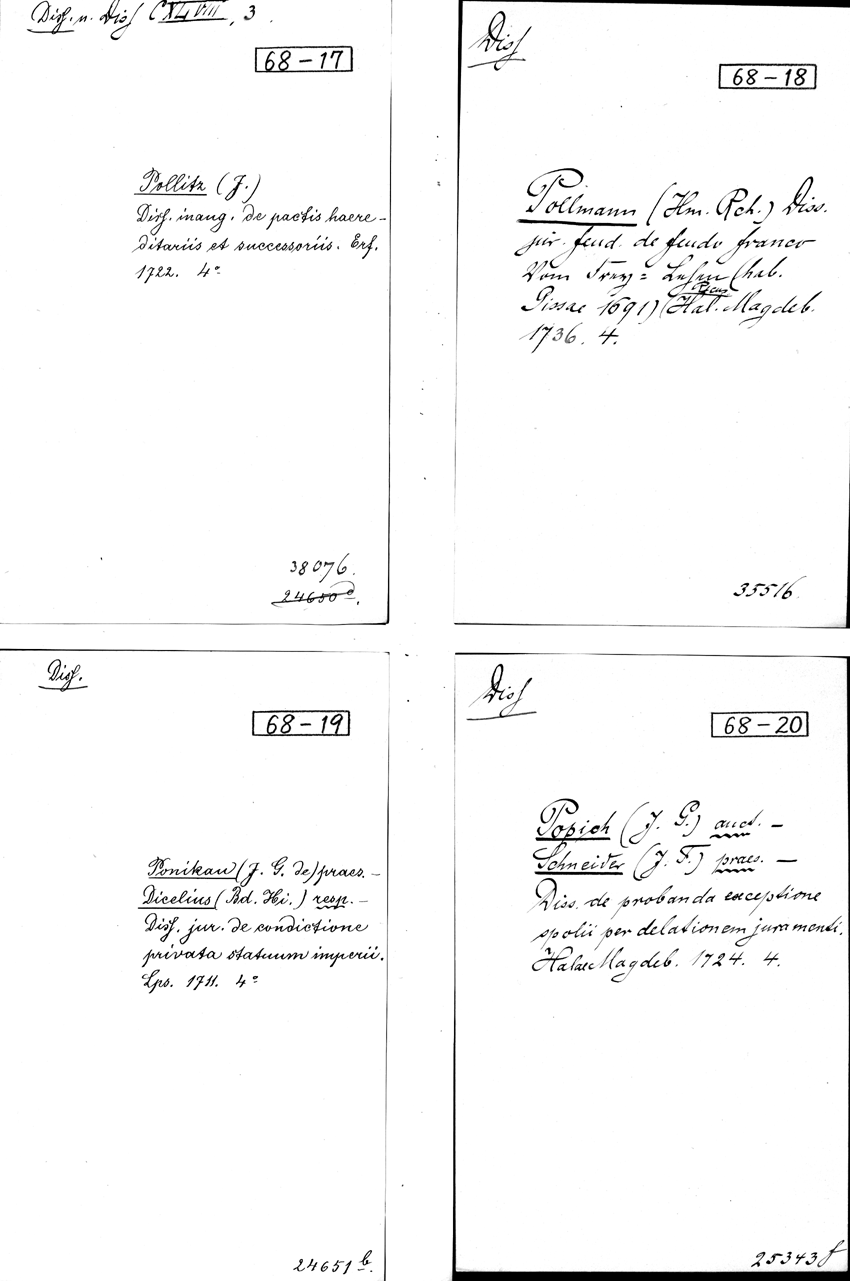 Diss. u. Diss CXLVIII, 3.
68-17
Pollitz (J.)
Diss. inaug. de pactis haere-
ditariis et successoriis. Erf.
1722. 4°
38076.
24650 d.
Diss
68-18
Pollmann (Hm. Rch.) Diss.
jur. feud. de feudo franco
Vom Frey= Lehen (hab.
Gissae 1691) (Hal. Magdeb.
1736. 4.
35516
Diss.
68-19
Ponikau (J. G. de) praes. -
Dicelius (Bd. Hi.) resp. -
Diss. jur. de condictione
privata statuum imperii.
Lps. 1711. 4°
24651 b.
Diss
68-20
Popich (J. G.) auct. -
Schneider (J. F.) praes. -
Diss. de probanda exceptione
spolii per delationem juramenti.
Halae Magdeb. 1724. 4.
25343 f